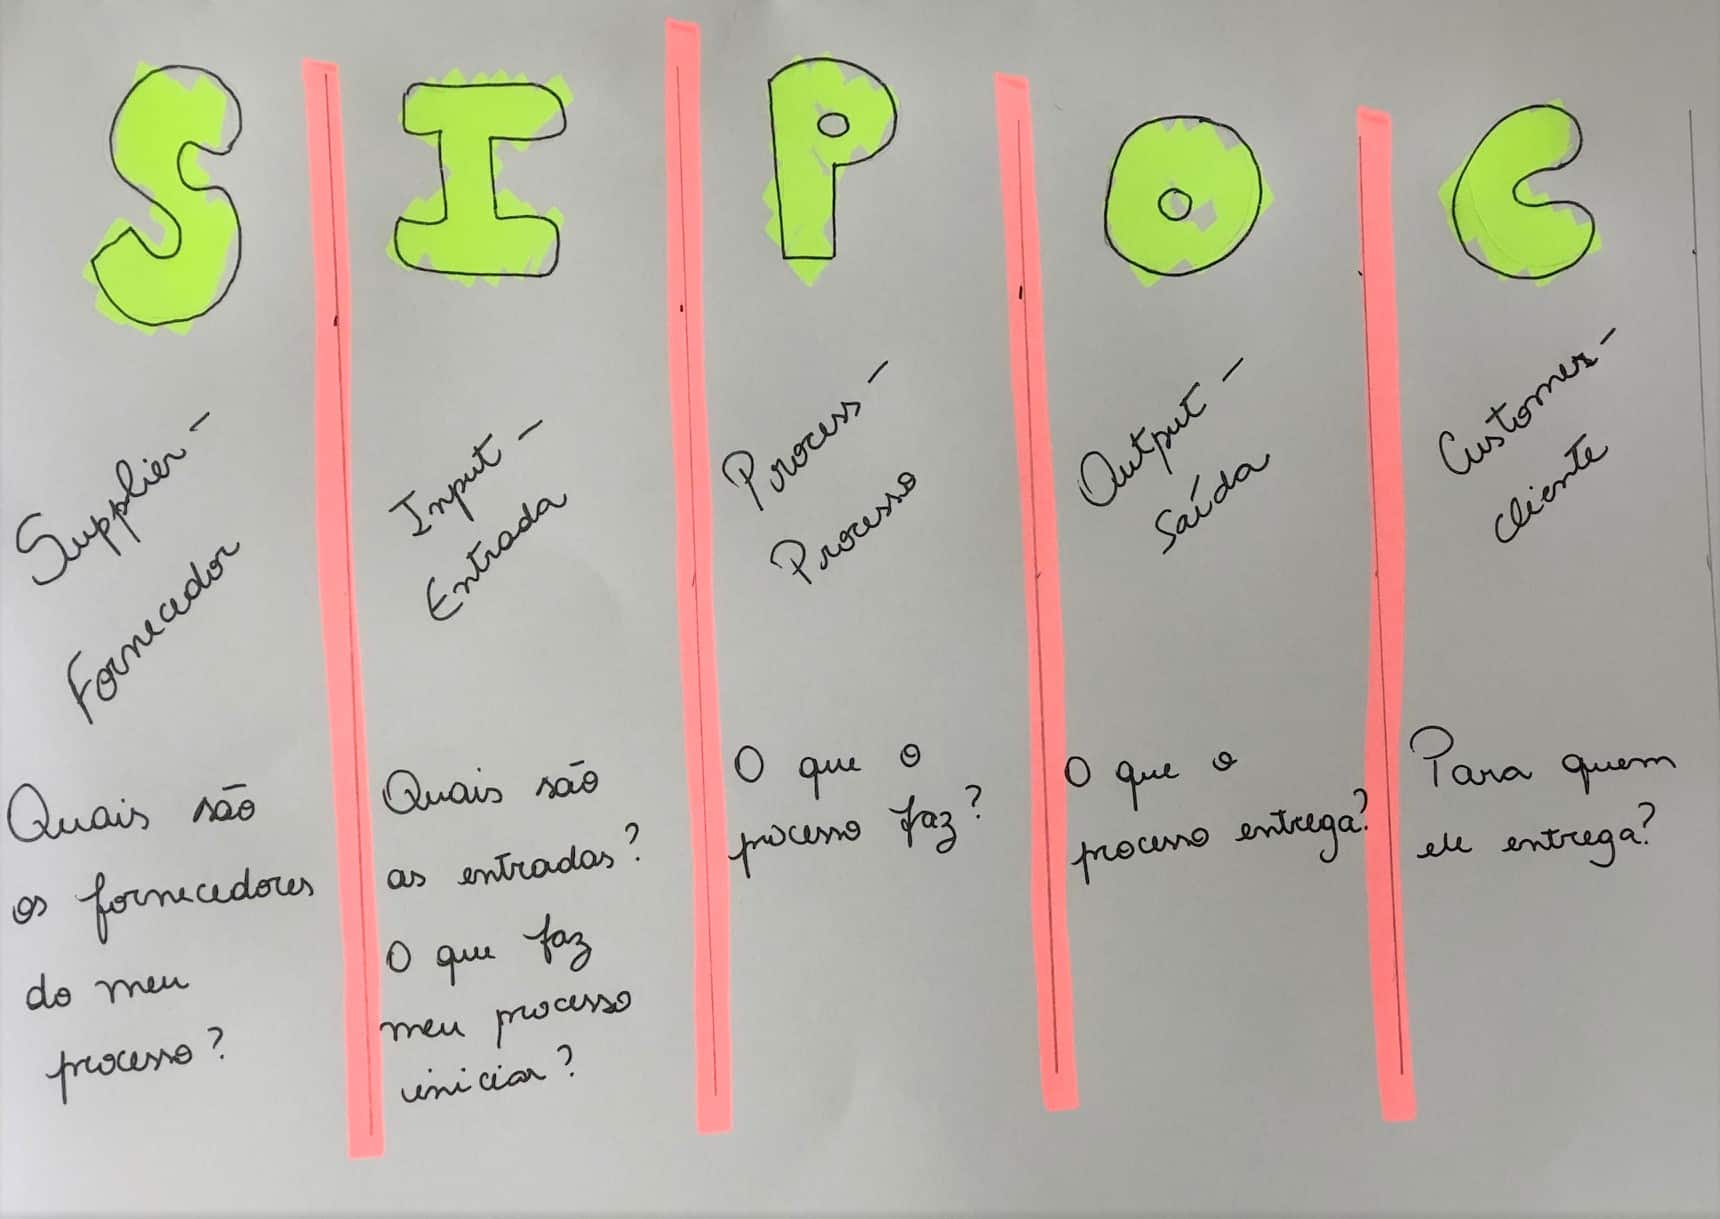 S
Supplier -
Fornecedor
Quais são
os fornecedores
do meu
processo?
I
Input -
Entrada
Quais são
as entradas?
O que faz
meu processo
iniciar?
P
Process -
Processo
O que o
processo faz?
O
Output -
Saída
O que o
processo entrega?
C
Customer -
cliente
Para quem
ele entrega?